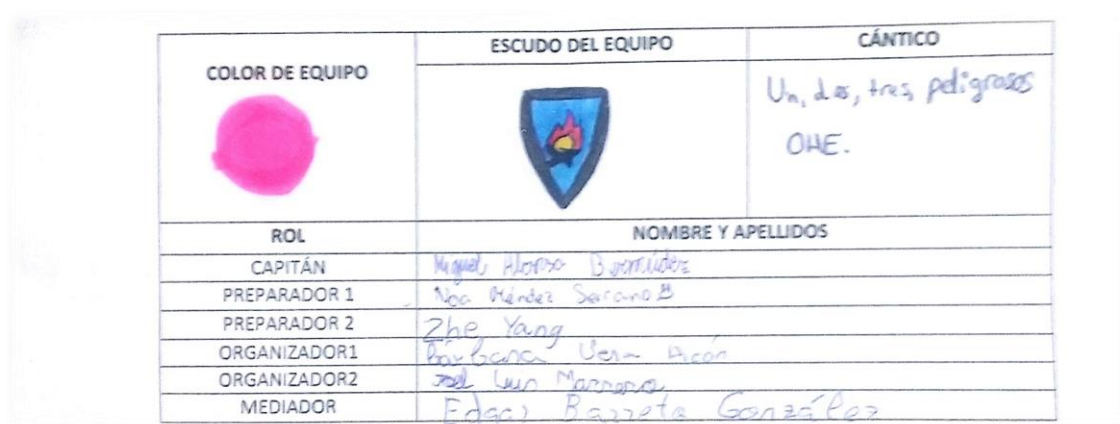 COLOR DE EQUIPO
ESCUDO DEL EQUIPO
CÁNTICO
Un, dos, tres, peligrosos
OHE.
ROL NOMBRE Y APELLIDOS
CAPITÁN Miguel Alonso Bermúdez
PREPARADOR 1 Noa Méndez Serrano
PREPARADOR 2 Zhe Yang
ORGANIZADOR1 Bárbara Vera
ORGANIZADOR2 Luis Marrero
MEDIADOR Edgar Barreto González